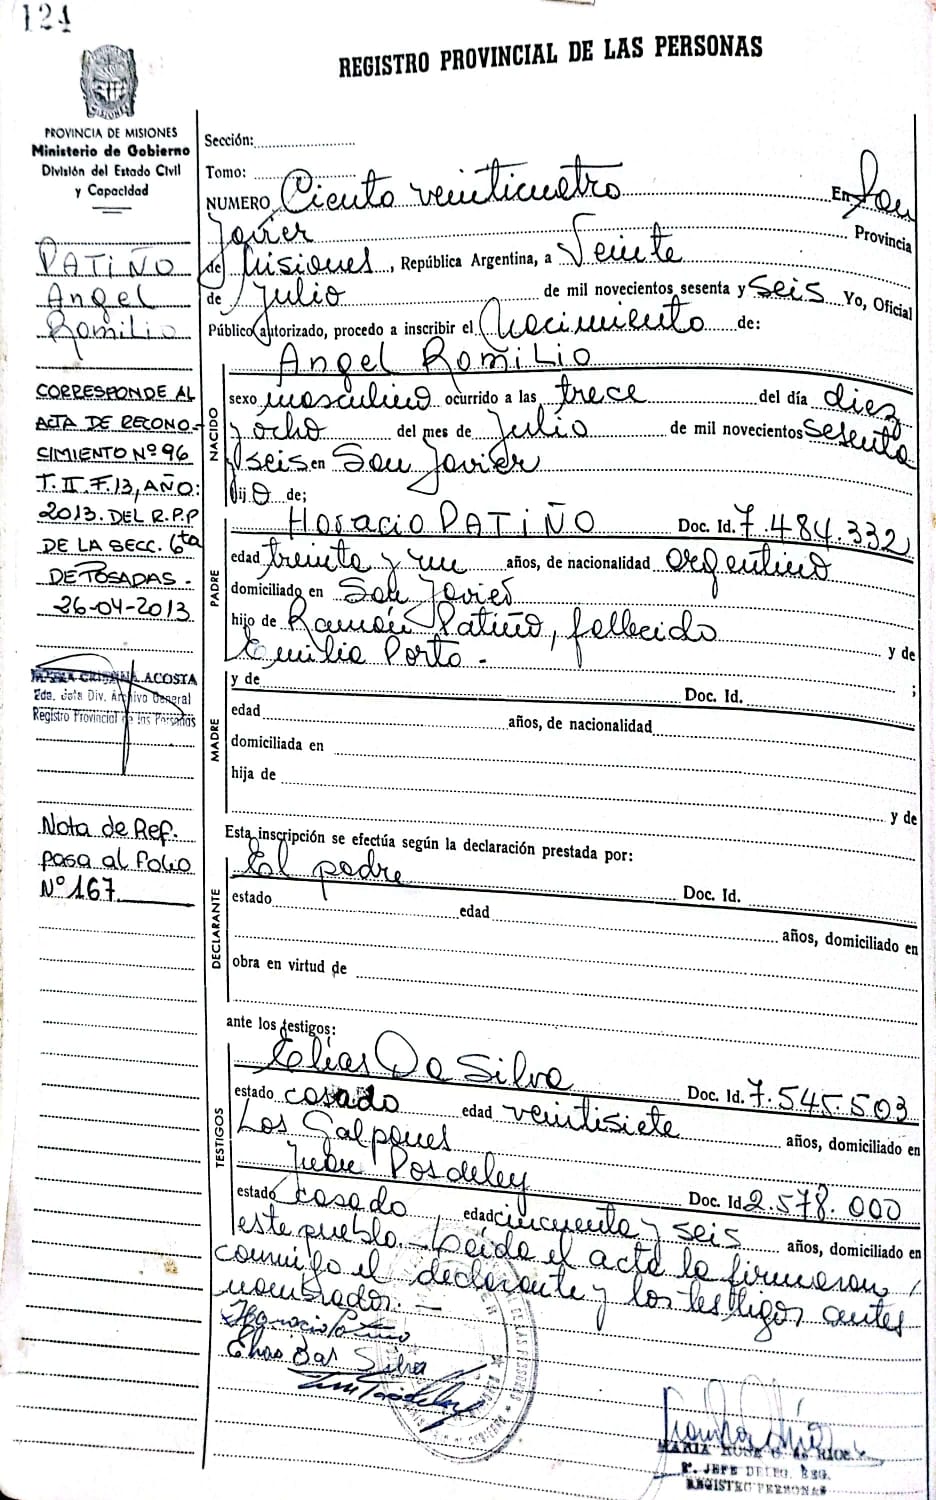 124
REGISTRO PROVINCIAL DE LAS PERSONAS
PROVINCIA DE MISIONES
Ministerio de Gobierno
División del Estado Civil
y Capacidad
PATIÑO
Angel
Romilio
CORRESPONDE AL
ACTA DE RECONO-
CIMIENTO Nº 96
T. II. F. 13, AÑO:
2013. DEL R.P.P
DE LA SECC. 6ta
DE POSADAS.
26-04-2013
ACOSTA
Jefa Div. Archivo General
Registro Provincial de las Personas
Nota de Ref.
pasa al Folio
Nº 167
Sección:
Tomo:
NUMERO Ciento veinticuatro En San
Javier Provincia
de Misiones, República Argentina, a Veinte
de Julio de mil novecientos sesenta y seis Yo, Oficial
Público autorizado, procedo a inscribir el Nacimiento de:
NACIDO
Angel Romilio
sexo masculino ocurrido a las trece del día diez
y ocho del mes de Julio de mil novecientos sesenta
y seis en San Javier
hijo de;
PADRE
Horacio PATIÑO Doc. Id. 7.484.332
edad treinta y un años, de nacionalidad argentino
domiciliado en San Javier
hijo de Ramón Patiño, fallecido y de
Emilia Porto. - ;
MADRE
y de Doc. Id.
edad años, de nacionalidad
domiciliada en
hija de
y de
Esta inscripción se efectúa según la declaración prestada por:
DECLARANTE
El padre Doc. Id.
estado edad años, domiciliado en
obra en virtud de
ante los testigos:
TESTIGOS
Elías Da Silva Doc. Id. 7.545.503
estado casado edad veintisiete años, domiciliado en
Los Galpones
Juan Posdeley Doc. Id 2.578.000
estado casado edad cincuenta y seis años, domiciliado en
este pueblo. Leída el acta la firmaron
conmigo el declarante y los testigos antes
nombrados. -
Horacio Patiño
Elias Das Silva
MARIA ROSA
JEFE DELEG. REG.
REGISTRO PERSONAS